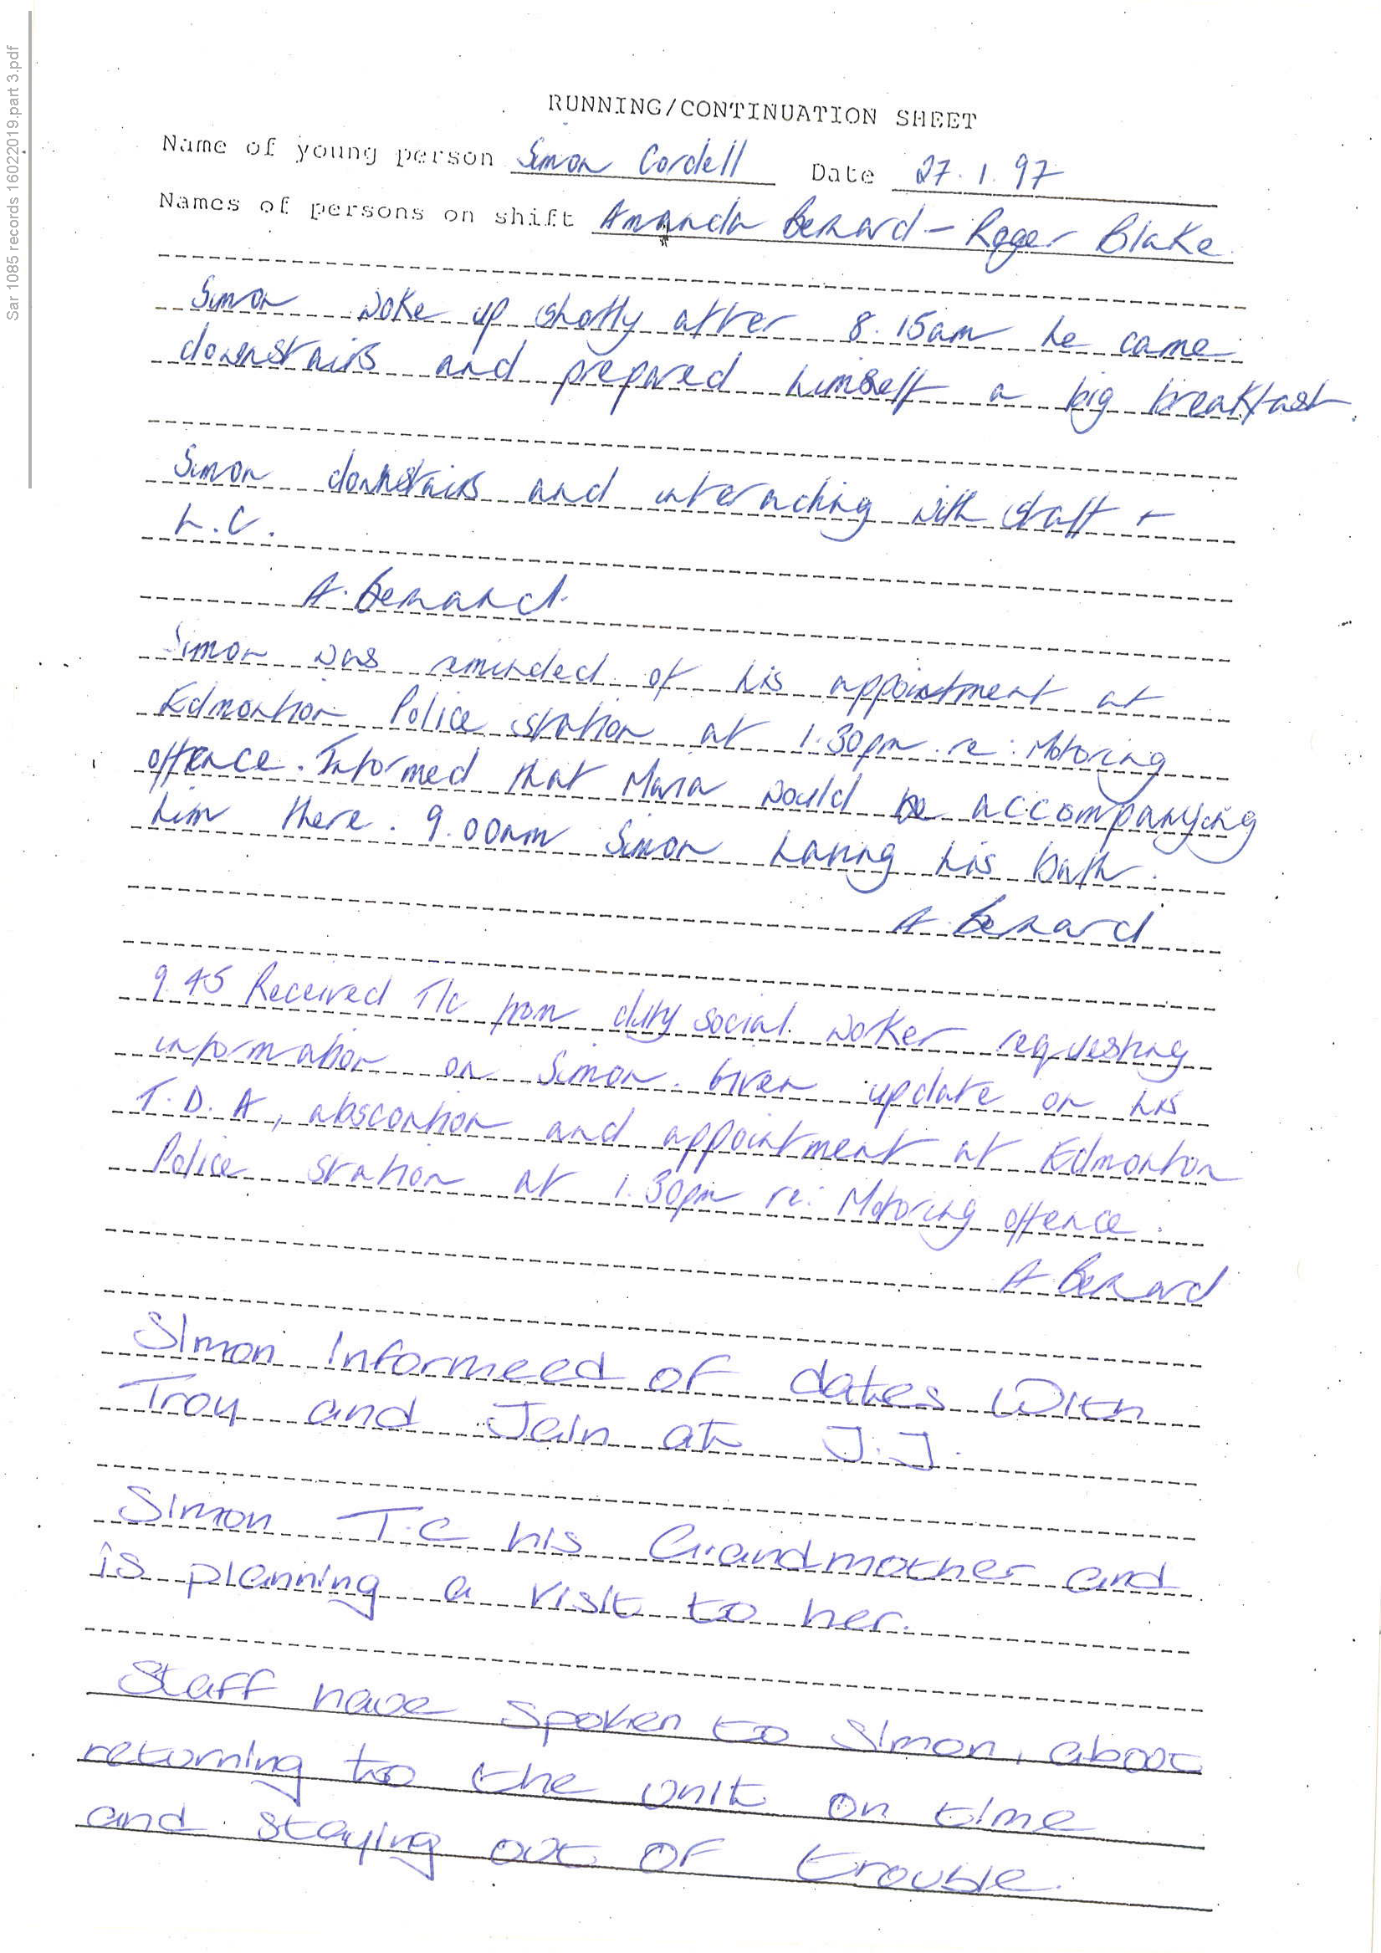 Sar 1085 records 16022019.part 3.pdf
RUNNING/CONTINUATION SHEET
Name of young person Simon Cordell Date 27.1.97
Names of persons on shift Amanda Bernard - Roger Blake.
Simon woke up shortly after 8.15am he came
downstairs and prepared himself a big breakfast.
Simon downstairs and interacting with staff +
L.C.
A. Bernard.
Simon was reminded of his appointment at
Edmonton Police station at 1.30pm re: Motoring
offence. Informed that Maria would be accompanying
him there. 9.00am Simon having his bath.
A. Bernard
9.45 Received T/c from duty social worker requesting
information on Simon. Given update on his
T.D.A, abscontion and appointment at Edmonton
Police station at 1.30pm re: Motoring offence.
A Bernard
Simon informeed of dates with
Troy and Jain at J.J.
Simon T.C his Grandmother and
is planning a visit to her.
Staff have spoken to Simon, about
returning to the unit on time
and staying out of trouble.